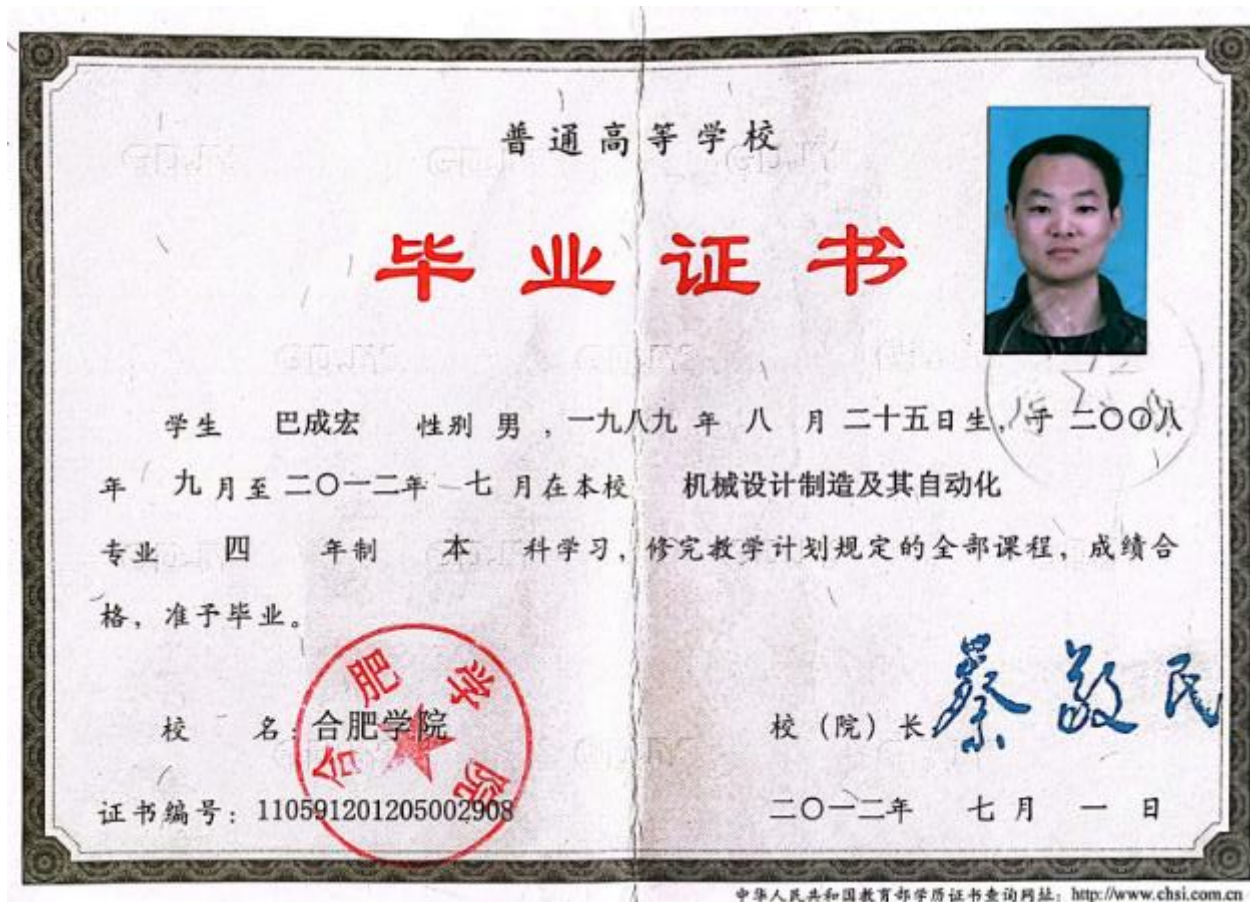 普通高等学校
毕业证书
学生 巴成宏 性别 男 ，一九八九 年 八 月 二十五日生，于 二〇〇八
年 九 月至 二〇一二年 七 月在本校 机械设计制造及其自动化
专业 四 年制 本 科学习，修完教学计划规定的全部课程，成绩合
格，准予毕业。
合肥学院
校 名：合肥学院
校（院）长 蔡敬民
证书编号：110591201205002908
二〇一二年 七 月 一 日
中华人民共和国教育部学历证书查询网址：http://www.chsi.com.cn